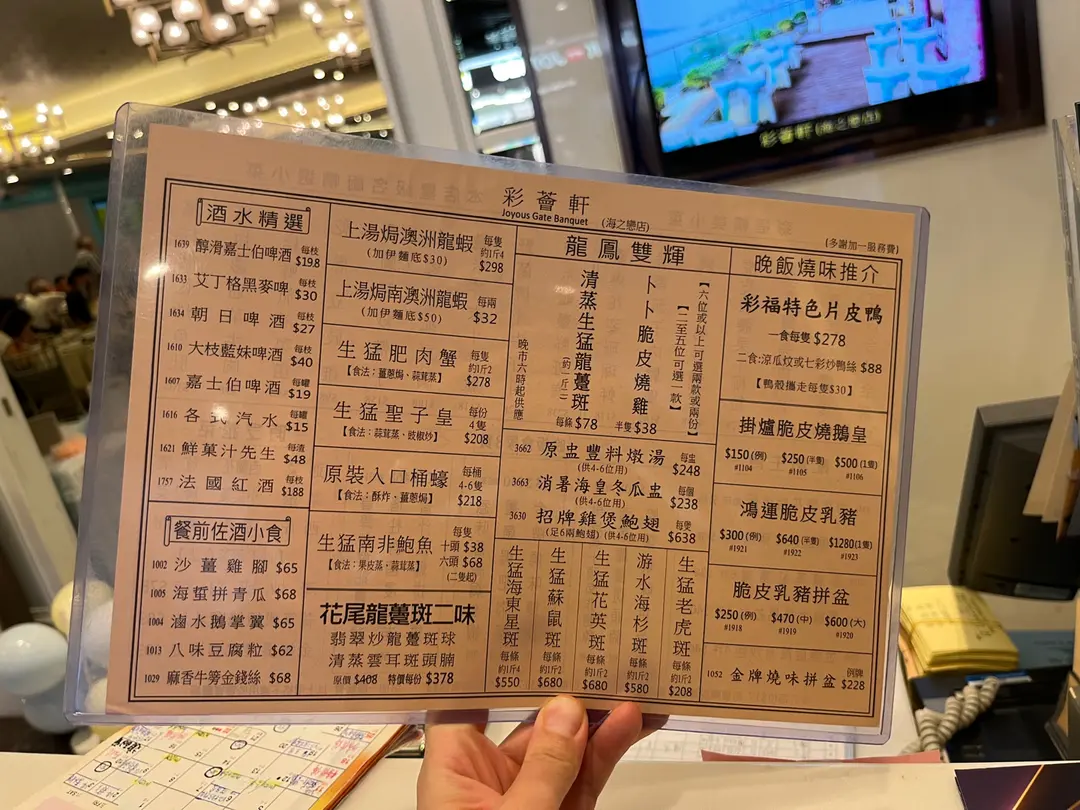 彩薈軒
Joyous Gate Banquet
(海之戀店)
(多謝加一服務費)
酒水精選
1639 醇滑嘉士伯啤酒 每枝 $19.8
1633 艾丁格黑麥啤 每枝 $30
1634 朝日啤酒 每枝 $27
1610 大枝藍妹啤酒 每枝 $40
1607 嘉士伯啤酒 每罐 $19
1616 各式汽水 每罐 $15
1621 鮮菓汁先生 每渣 $48
1757 法國紅酒 每枝 $188
餐前佐酒小食
1002 沙薑雞腳 $65
1005 海蜇拼青瓜 $68
1004 滷水鵝掌翼 $65
1013 八味豆腐粒 $62
1029 麻香牛蒡金錢絲 $68
上湯焗澳洲龍蝦 每隻 約1斤4 $298
(加伊麵底$30)
上湯焗南澳洲龍蝦 每兩 $32
(加伊麵底$50)
生猛肥肉蟹 每隻 約1斤2 $278
【食法：薑蔥焗、蒜茸蒸】
生猛聖子皇 每份 4隻 $208
【食法：蒜茸蒸、豉椒炒】
原裝入口桶蠔 每桶 4-6隻 $218
【食法：酥炸、薑蔥焗】
生猛南非鮑魚 每隻 十頭 $38 六頭 $68 (二隻起)
【食法：果皮蒸、蒜茸蒸】
花尾龍躉斑二味
翡翠炒龍躉斑球
清蒸雲耳斑頭腩
原價 $408 特價每份 $378
龍鳳雙輝
【六位或以上可選兩款或兩份】
【二至五位可選一款】
卜卜脆皮燒雞 半隻 $38
清蒸生猛龍躉斑 (約一斤) 每條 $78
晚市六時起供應
3662 原盅豐料燉湯 每盅 $248
(供4-6位用)
3663 消暑海皇冬瓜盅 每個 $238
(供4-6位用)
3630 招牌雞煲鮑翅 每隻 $638
(足6兩鮑翅) (供4-6位用)
生猛海東星斑 每條 約1斤4 $550
生猛蘇鼠斑 每條 約1斤2 $680
生猛花英斑 每條 約1斤2 $680
游水海杉斑 每條 約1斤2 $580
生猛老虎斑 每條 約1斤2 $208
晚飯燒味推介
彩福特色片皮鴨
一食每隻 $278
二食：涼瓜炆或七彩炒鴨絲 $88
【鴨殼攜走每隻$30】
掛爐脆皮燒鵝皇
$150 (例) $250 (半隻) $500 (1隻)
#1104 #1105 #1106
鴻運脆皮乳豬
$300 (例) $640 (半隻) $1280 (1隻)
#1921 #1922 #1923
脆皮乳豬拼盆
$250 (例) $470 (中) $600 (大)
#1918 #1919 #1920
1052 金牌燒味拼盆 例牌 $228
彩薈軒(海之戀店)